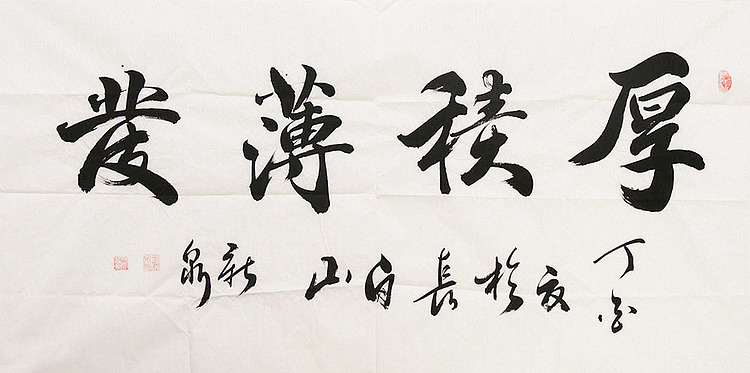 厚積薄發
丁酉夏於長白山 新泉